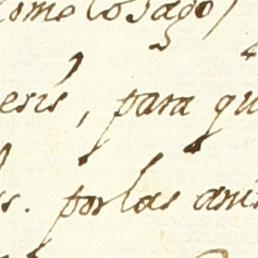 como lo hago
eris, para qu
s. por las ani